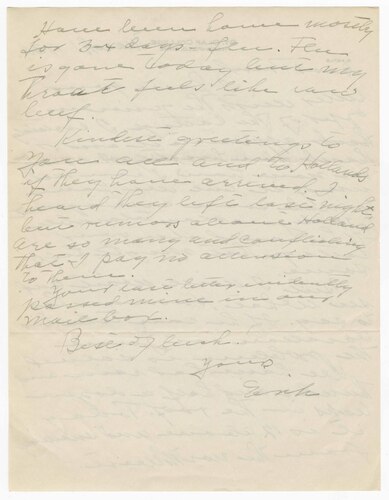 Have been home mostly
for 3-4 days - flu. Flu
is gone today but my
throat feels like raw
beef.
Kindest greetings to
you all and to Hollands
if they have arrived. I
heard they left last night,
but rumors about Holland
are so many and conflicting
that I pay no attention
to them.
Your last letter evidently
passed mine in our
mail box.
Best of luck!
Yours